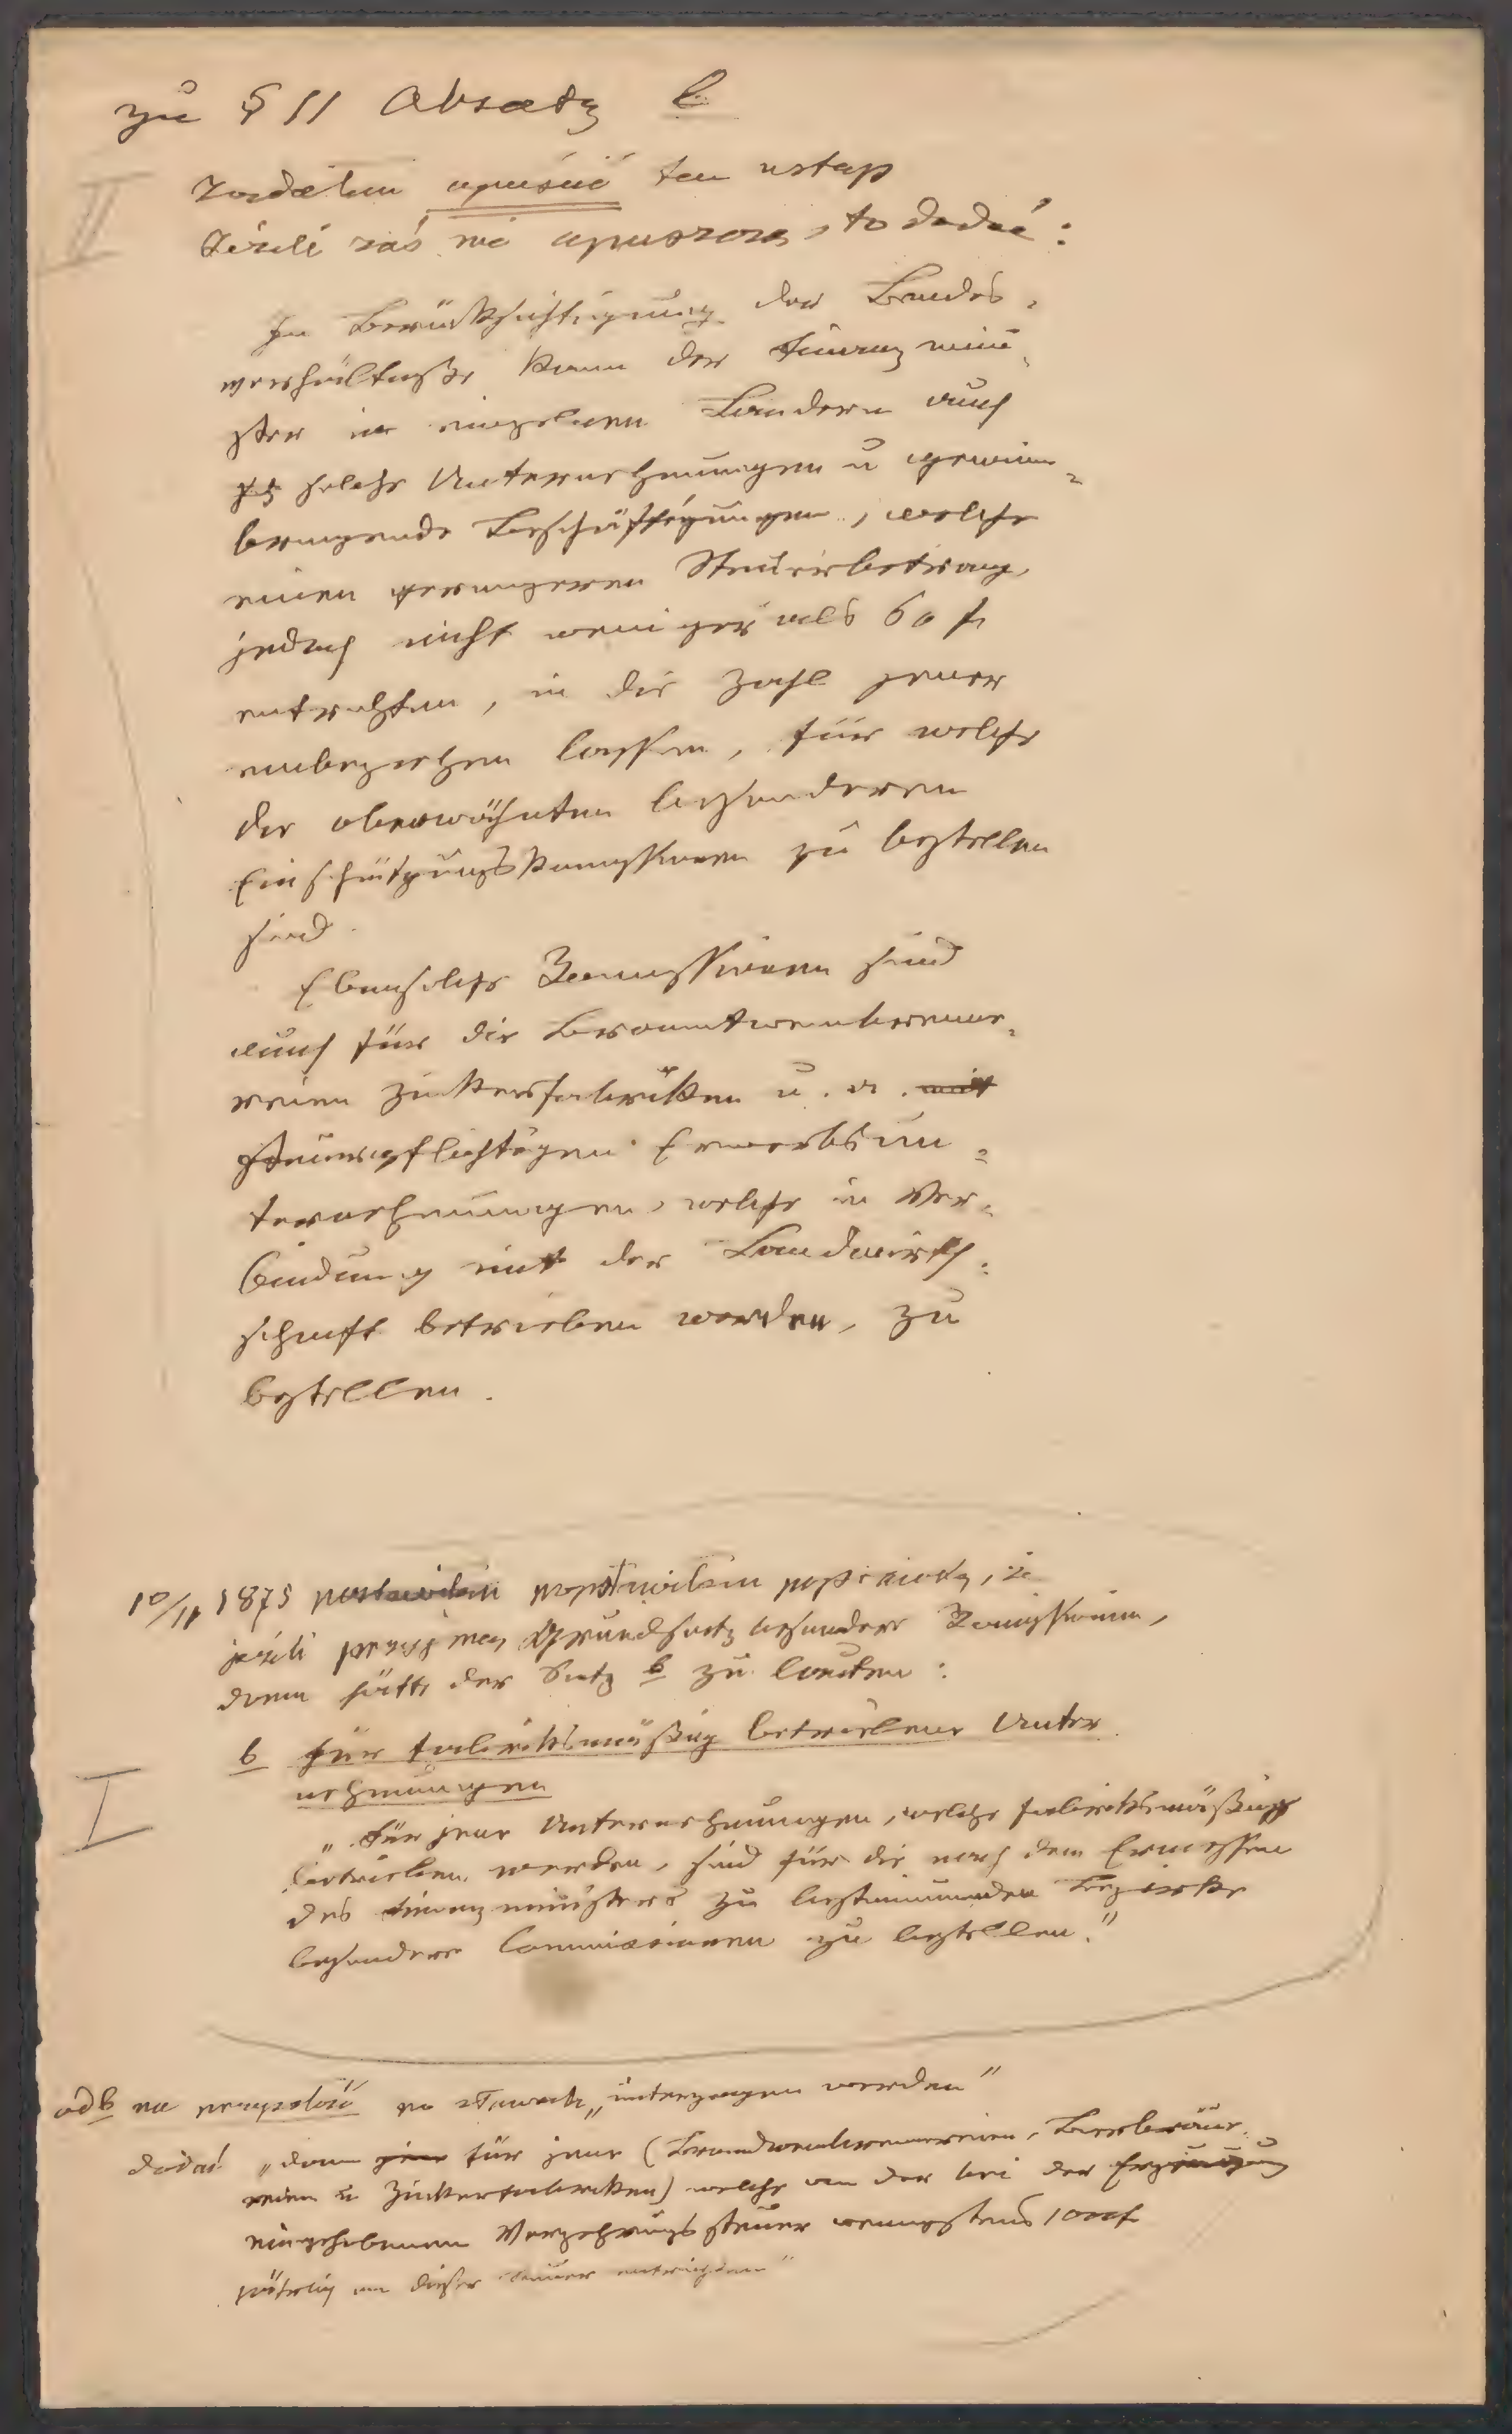 zu § 11 Absatz b
II
żądałem opuścić ten ustęp
Jeżeli zaś nie opuszczą, to dodać:
In Berücksichtigung der Landes-
verhältnisse kann der Finanzmini-
ster in einzelnen Ländern auch
solche Unternehmungen u gewinn-
bringende Beschäftigungen, welche
einen geringeren Steuerbetrag,
jedoch nicht weniger als 60 f
entrichten, in die Zahl jener
einbeziehen lassen, für welche
die oberwähnten besonderen
Einschätzungskommissionen zu bestellen
sind.
Ebensolche Kommissionen sind
auch für die Branntweinbrenne-
reien Zuckerfabriken u. a. mit
steuerpflichtigen Erwerbsun-
ternehmungen, welche in Ver-
bindung mit der Landwirth-
schaft betrieben werden, zu
bestellen.
10/11 1875 postawiłem postawiłem poprawkę, że
jeżeli przyjmą Grundsatz besonderer Kommissionen,
dann hätte der Satz b zu lauten:
b für fabriksmäßig betriebene Unter
nehmungen
I
„Für jene Unternehmungen, welche fabriksmäßig
betrieben werden, sind für die nach dem Ermessen
des Finanzministers zu bestimmenden Bezirke
besondere Commissionen zu bestellen."
ad b na po słowach „unterzogen werden"
dodać „dann jene für jene (Brandweinbrennereien, Bierbraue-
reien u Zuckerfabriken) welche von der bei der Erzeugung
eingehobenen Verzehrungssteuer wenigstens 1000 f
jährlich an dieser Steuer entrichten"